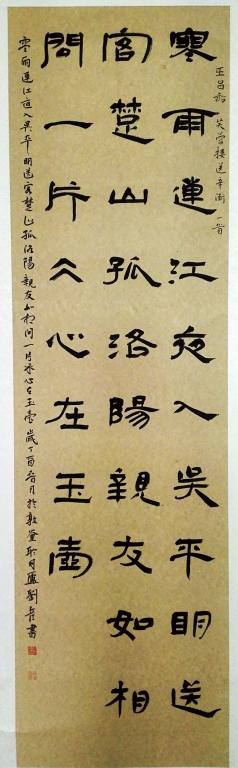 王昌齡 芙蓉樓送辛漸一首
寒雨連江夜入吳平明送
客楚山孤洛陽親友如相
問一片仌心在玉壺
寒雨連江夜入吳平明送客楚山孤洛陽親友如相問一片冰心在玉壺歲丁酉春月於敦煌聆月廬劉書